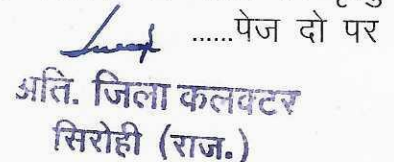 ......पेज दो पर
अति. जिला कलक्टर
सिरोही (राज.)